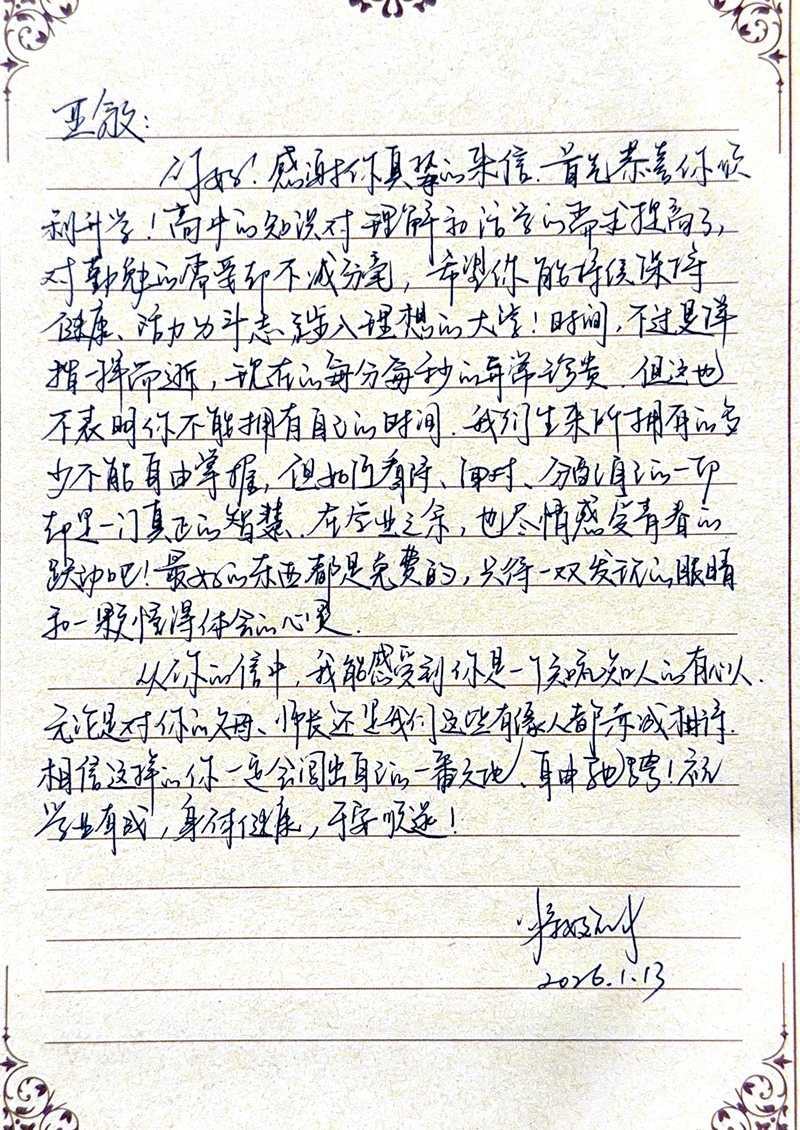 亚敏:
你好!感谢你真挚的来信.首先恭喜你顺
利升学!高中的知识对理解和活学的需求提高了,
对勤勉的需要却不减分毫,希望你能持续保持
健康、活力与斗志步入理想的大学!时间,不过是浑
指一挥而逝,现在的每分每秒的异常珍贵.但这也
不表明你不能拥有自己的时间.我们生来所拥有的多
少不能自由掌握,但如何看待、面对、分配自己的一切
却是一门真正的智慧.在学业之余,也尽情感受青春的
跃动吧!最好的东西都是免费的,只待一双发现的眼睛
和一颗懂得体会的心灵.
从你的信中,我能感受到你是一个知人的有心人.
无论是对你的父母、师长还是我们这些有缘人都赤诚相待.
相信这样的你一定会闯出自己的一番天地、自由驰骋!祝
学业有成,身体健康,平安顺遂!
2026.1.13